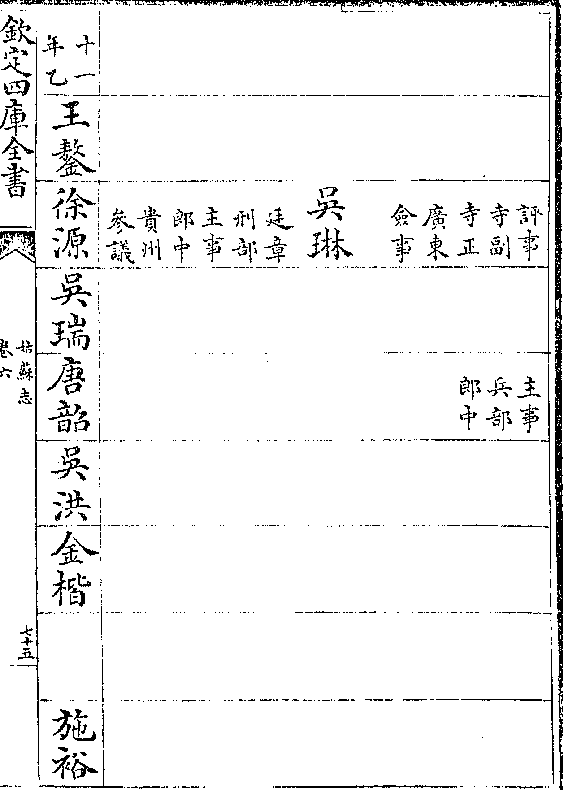 評事
寺副
寺正
廣東
僉事
吳琳
廷章
刑部
主事
郎中
貴州
參議
主事
兵部
郎中
十一
年乙
王鏊
徐源
吳瑞
唐韶
吳洪
金楷
施裕
欽定四庫全書
姑蘇志
卷六
七十五